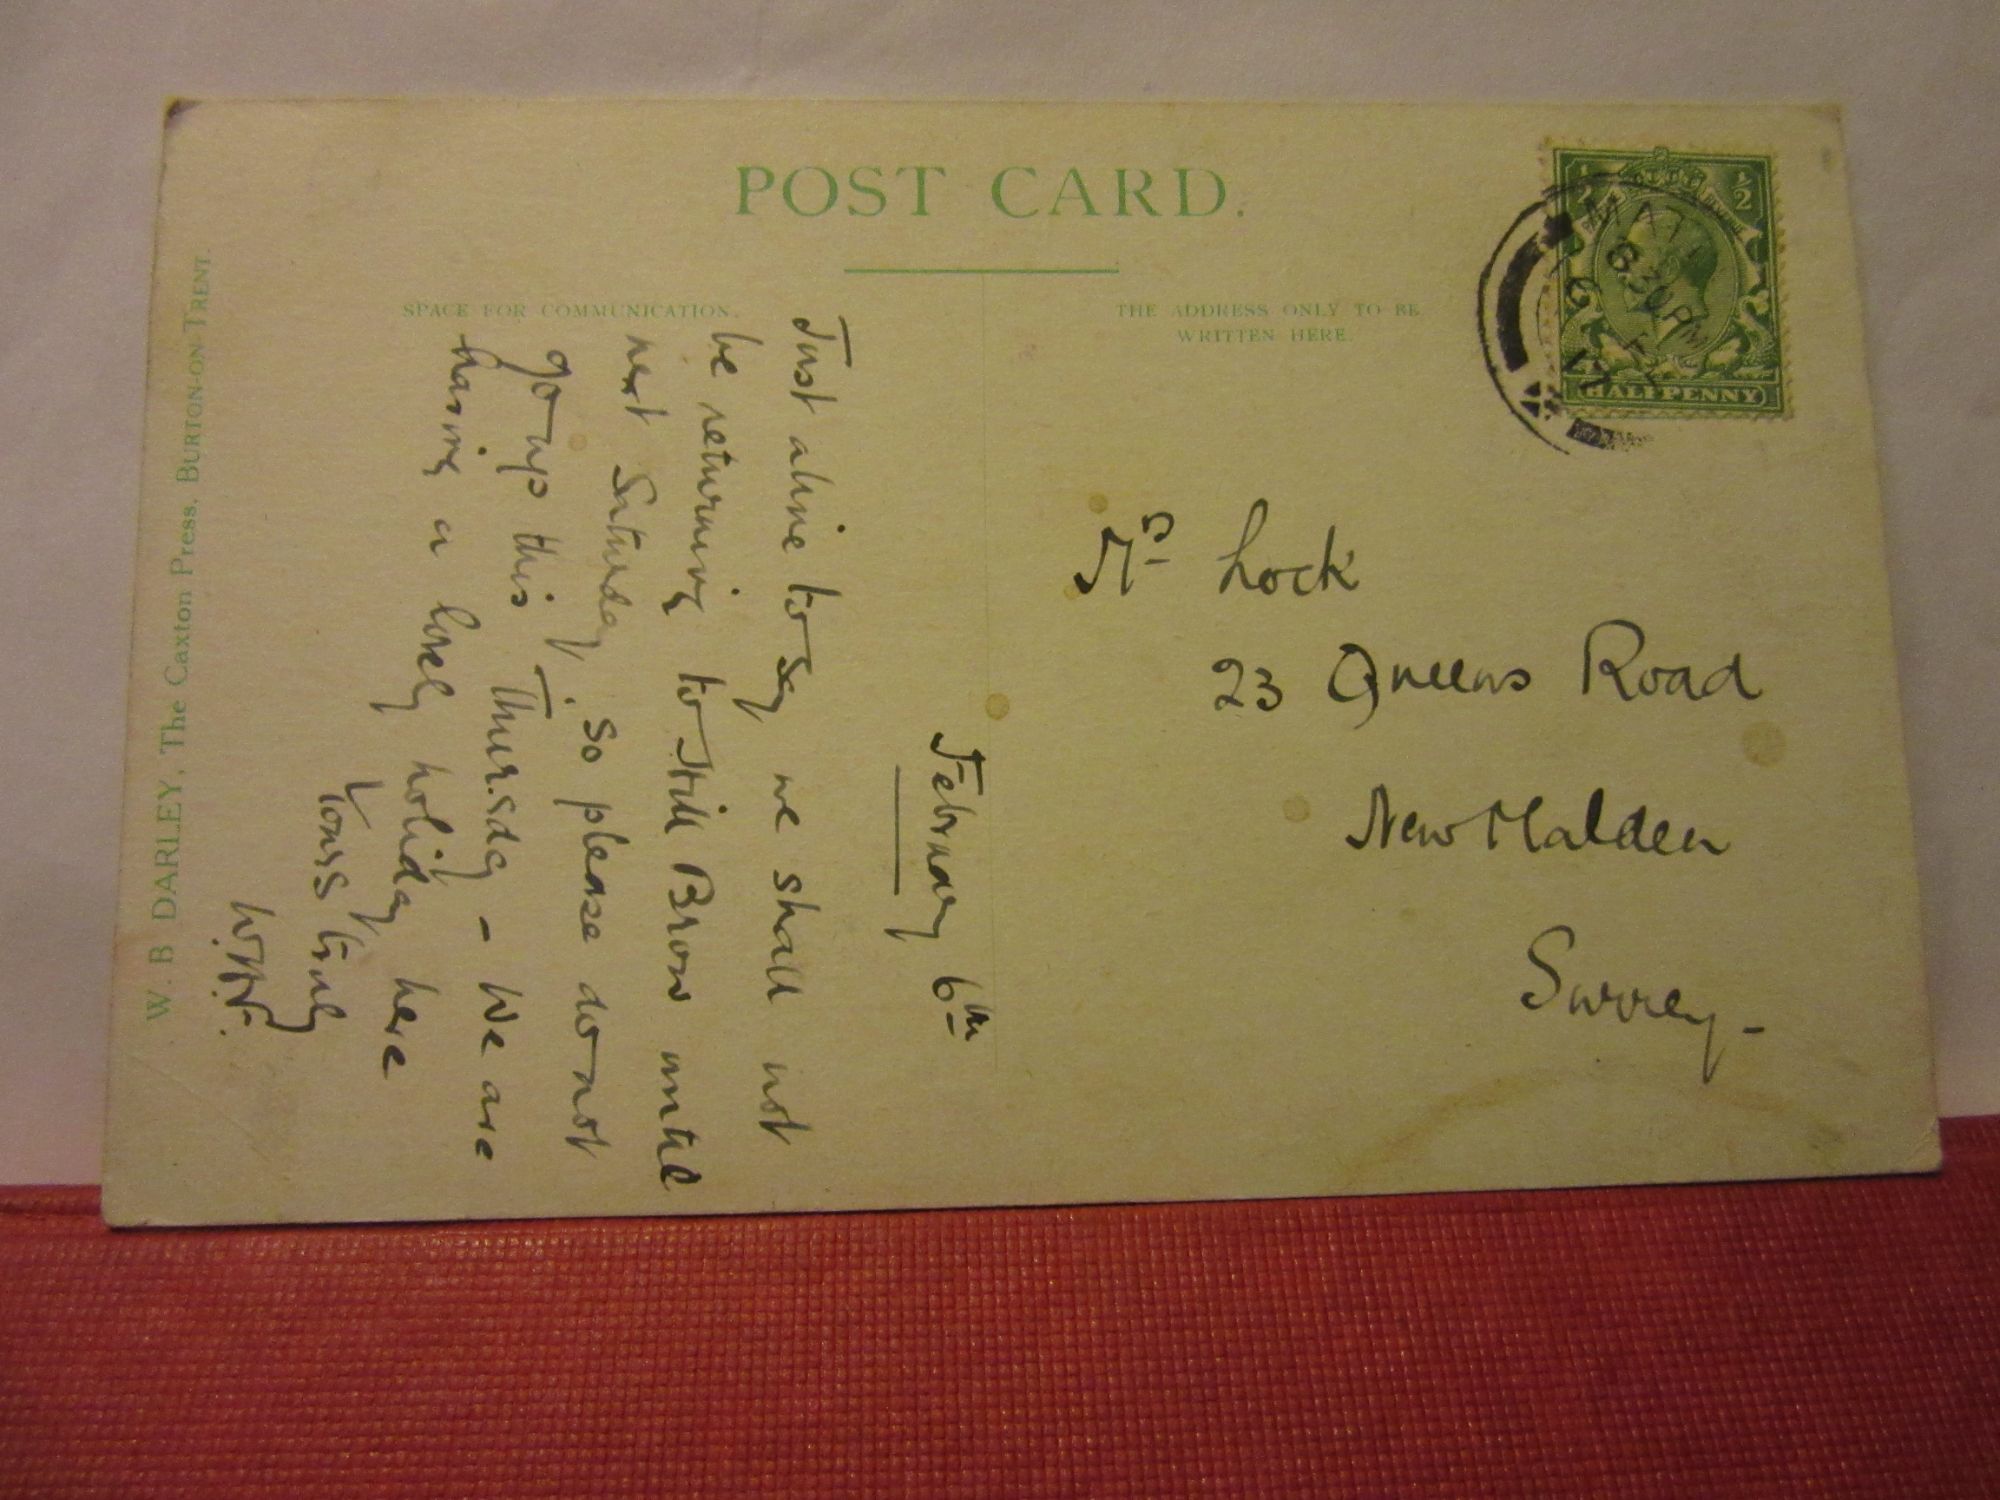 POST CARD.
SPACE FOR COMMUNICATION.
THE ADDRESS ONLY TO BE
WRITTEN HERE.
W. B DARLEY, The Caxton Press, BURTON-ON-TRENT.
½ ½
HALFPENNY
6 30 PM
6 FE
17
February 6th
Just a line to say we shall not
be returning to Hill Brow until
next Saturday, so please do not
go up this Thursday - We are
having a lovely holiday here
Yours truly
Mrs Lock
23 Queens Road
New Malden
Surrey -